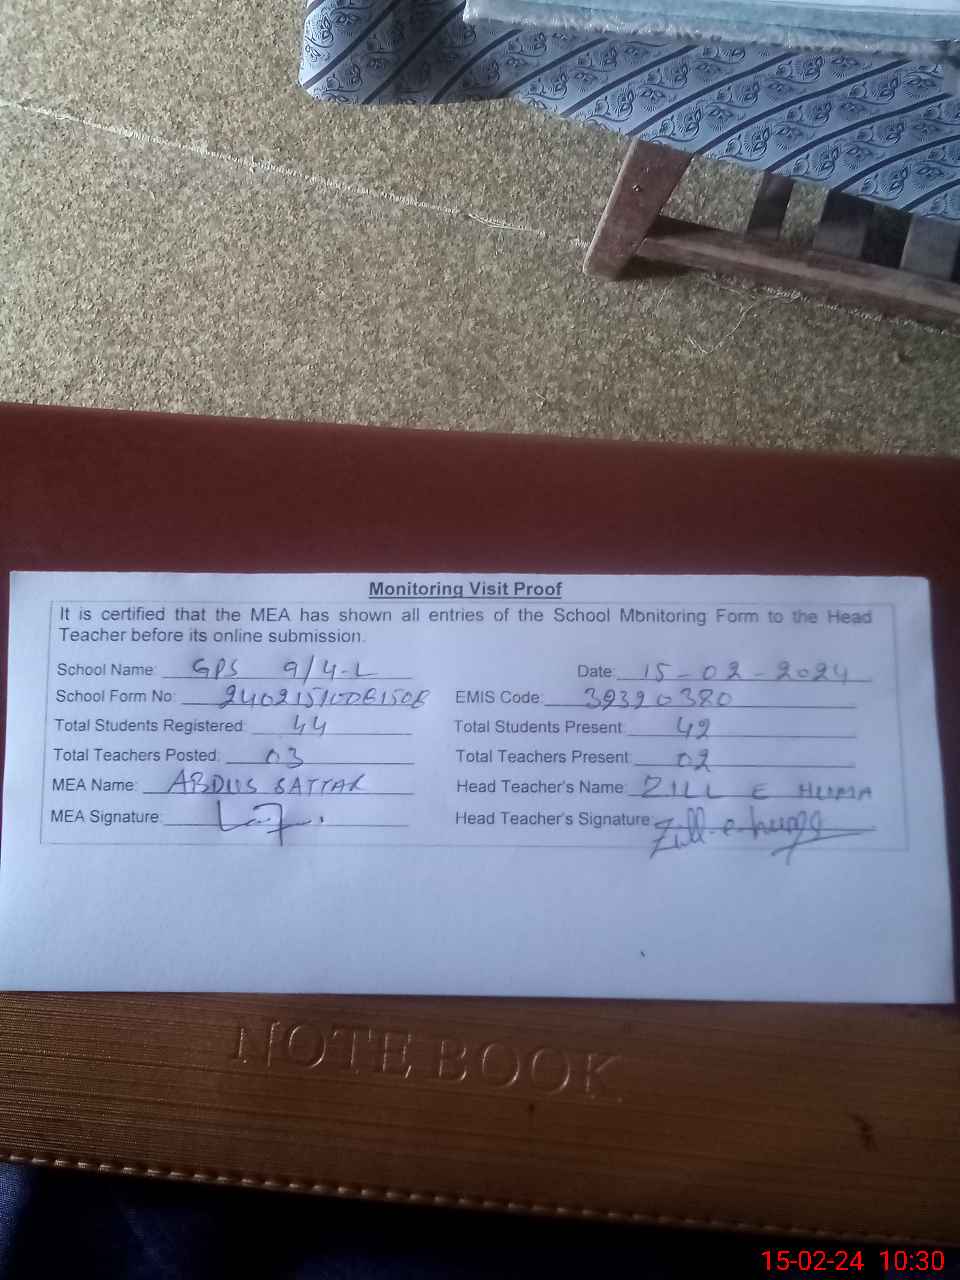 Monitoring Visit Proof
It is certified that the MEA has shown all entries of the School Monitoring Form to the Head
Teacher before its online submission.
School Name: GPS 9/4-L Date: 15-02-2024
School Form No: EMIS Code: 39320380
Total Students Registered: 44 Total Students Present: 42
Total Teachers Posted: 03 Total Teachers Present: 02
MEA Name: ABDUS SATTAR Head Teacher's Name: ZILL E HUMA
MEA Signature: Head Teacher's Signature: Zill-e-huma
NOTE BOOK
15-02-24 10:30